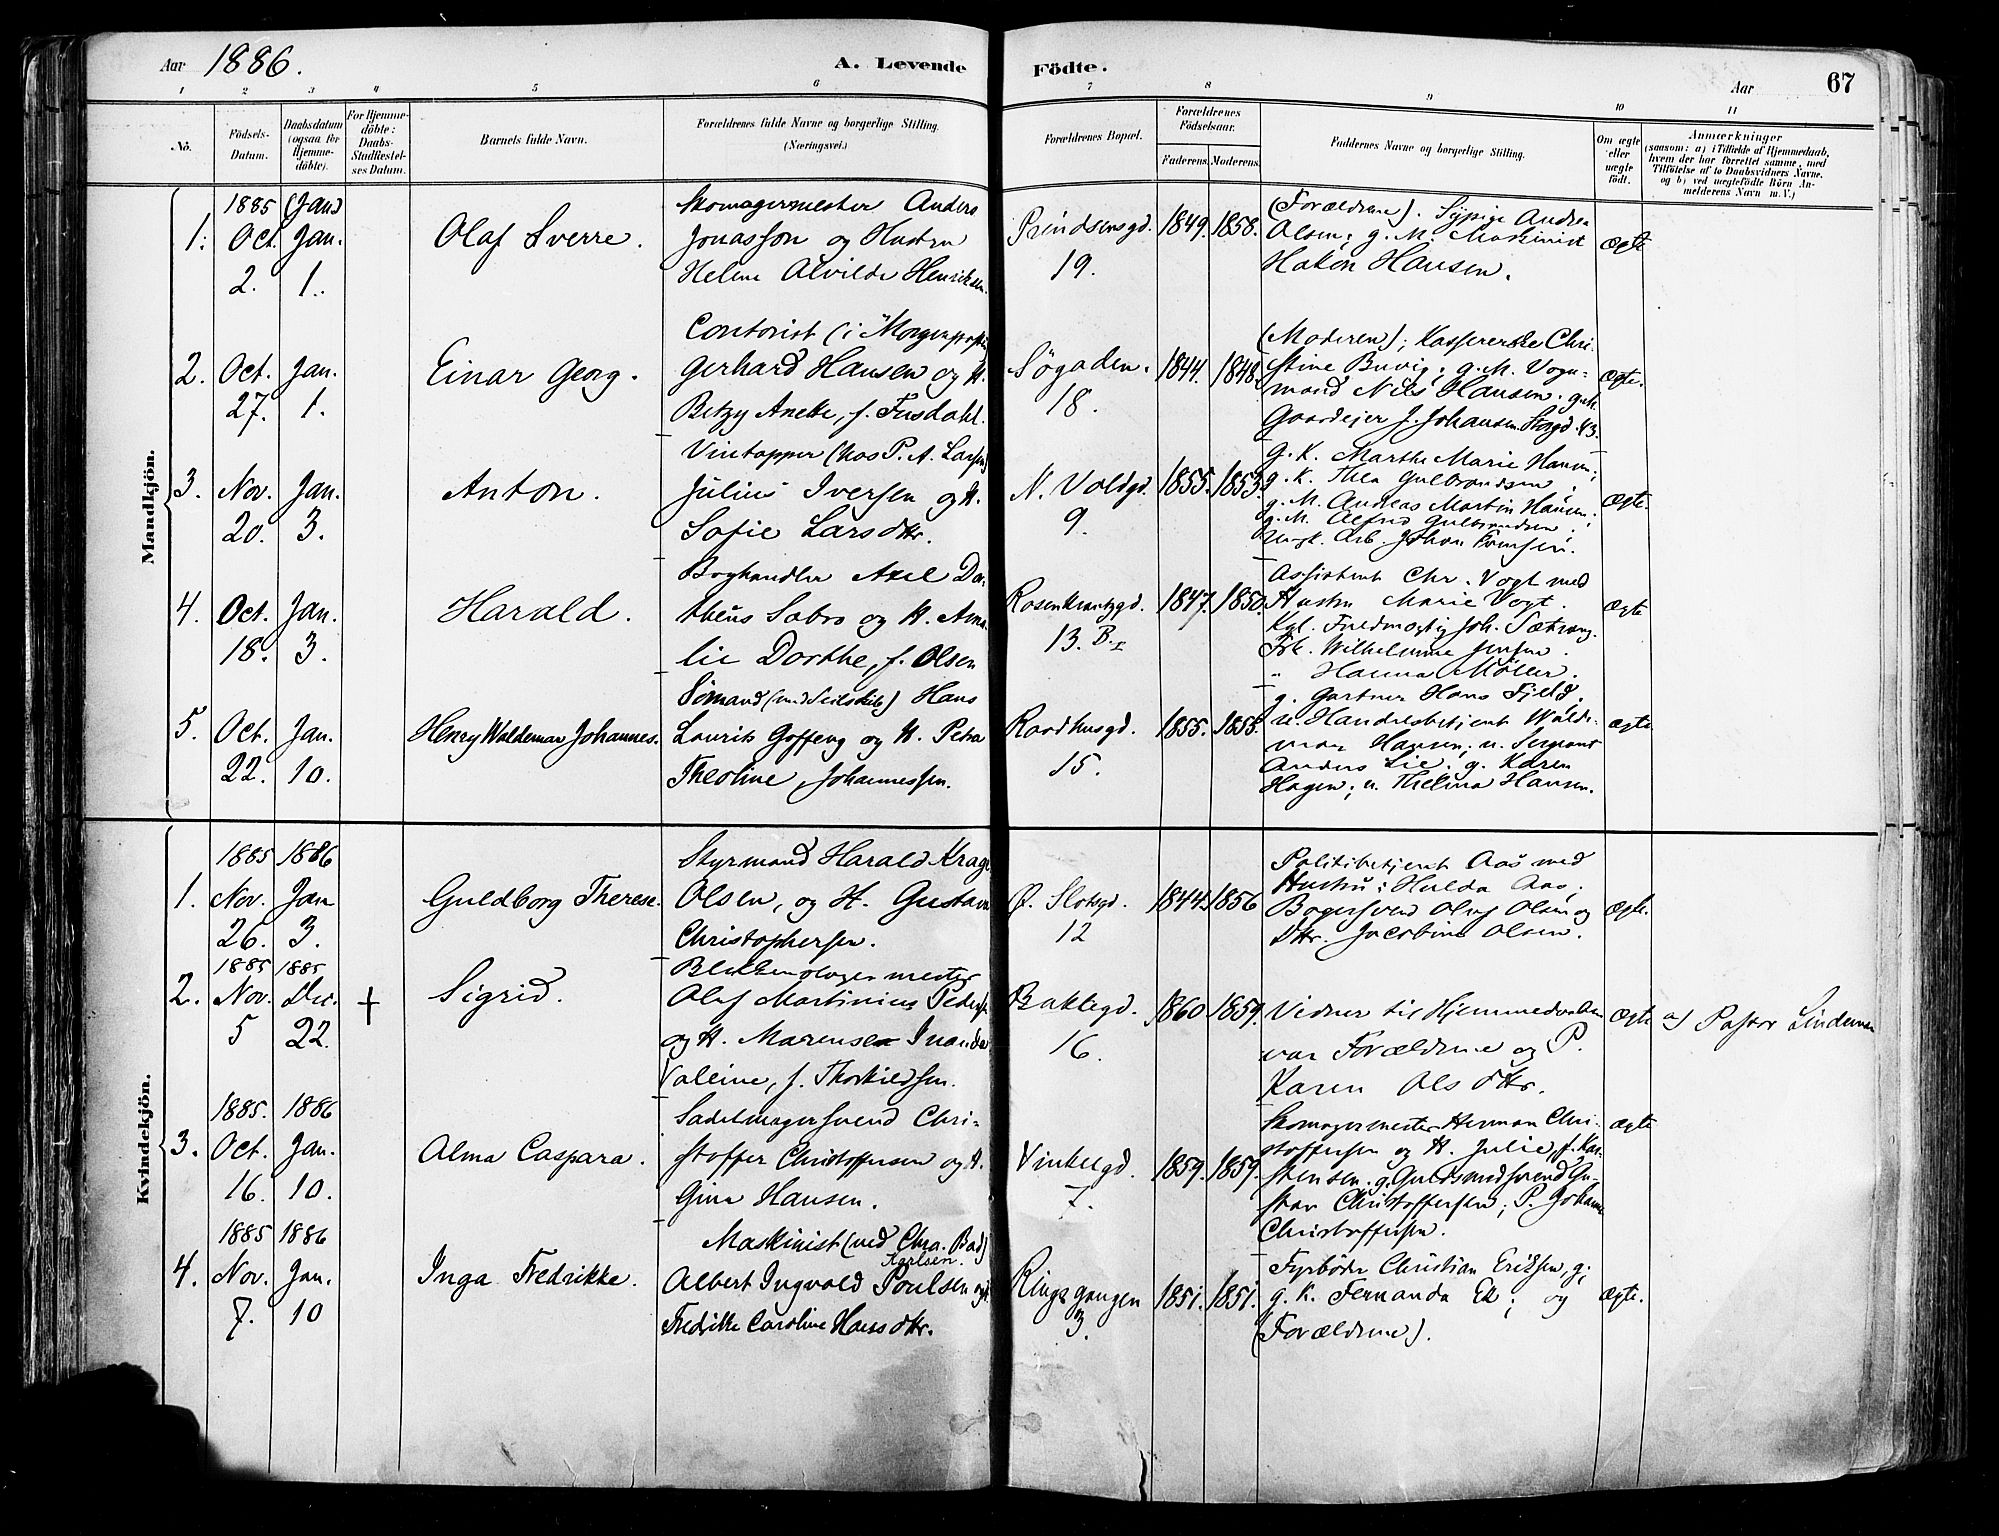 Aar 1886. A. Levende Födte. Aar 67
1 2 3 4 5 6 7 8 9 10 11
No.
Födsels-
Datum.
Daabsdatum
(ogsaa for
Hjemme-
döbte).
For Hjemme-
döbte:
Daabs-
Stadfæstel-
ses Datum.
Barnets fulde Navn.
Forældrenes fulde Navne og borgerlige Stilling.
(Næringsvei.)
Forældrenes Bopæl.
Forældrenes
Födselsaar.
Faderens. Moderens.
Faddernes Navne og borgerlige Stilling.
Om ægte
eller
uægte
födt.
Anmærkninger
(saasom: a) i Tilfælde af Hjemmedaab,
hvem der har forrettet samme, med
Tilföielse af to Daabsvidners Navne,
og b) ved uægtefödte Börn An-
melderens Navn m. V.)
Mandkjön.
1.
1885
Oct.
2.
(Jan)
Jan.
1.
Olaf Sverre.
Skomagermester Anders
Jonassen og Hustru
Helene Alvilde Henriksen.
Prindsensgd.
19.
1849. 1858.
(Forældrene). Sypige Andrea
Olsen; g. M. Maskinist
Hakon Hansen.
ægte
2.
Oct.
27.
Jan.
1.
Einar Georg.
Contorist (i "Morgenposten")
Gerhard Hansen og H.
Betzy Anette, f. Fusdahl.
Søgaden.
18.
1844. 1848.
(Moderen); Kassererske Chri-
stine Buvig; g. M. Vogn-
mand Nils Hansen; g. M.
Gaardejer J. Johansen Storgd. 43.
ægte.
3.
Nov.
20.
Jan.
3.
Anton.
Vintapper (hos P. A. Larsen)
Julius Iversen og H.
Sofie Larsdttr.
N. Voldgd.
9.
1855. 1853.
g. K. Marthe Marie Hansen;
g. K. Thea Gulbrandsen;
g. M. Andreas Martin Hansen;
g. M. Alfred Gulbrandsen;
Ungk. Arb. Johan
ægte.
4.
Oct.
18.
Jan.
3.
Harald.
Boghandler Axel Do-
theus Sabro og H. Ama-
lie Dorthe, f. Olsen
Rosenkrantzgd.
13. B.
1847. 1850.
Assistent Chr. Vogt med
Hustru Marie Vogt.
Kgl. Fuldmægtig Joh. Sætrang.
Frk. Wilhelmine Jensen.
" Hanna Möller.
ægte
5.
Oct.
22.
Jan.
10.
Henry Waldemar Johannes.
Sömand (med Seilskib) Hans
Laurits Goffeng og H. Petra
Theoline Johannessen.
Raadhusgd.
15.
1855. 1855.
g. Gartner Hans Fjeld,
u. Handelsbetjent Walde-
mar Hansen; u. Sergeant
Anders Lie. g. Karen
Hagen; u. Thelina Hansen.
ægte
Kvindekjön.
1.
1885
Nov.
26.
1886
Jan
3.
Guldborg Therese.
Styrmand Harald Krage
Olsen, og H. Gustava
Christophersen.
Ø. Slotsgd.
12
1844. 1856
Politibetjent Aas med
Hustru: Hulda Aas;
Bagersvend Olaf Olsen og
Dttr. Jacobine Olsen.
ægte.
2.
1885
Nov.
5
1885
Dec.
22.
+
Sigrid.
Blikkenslagermester
Olaf Martinius Peders.
og H. Marense Inanda
Valeine, f. Thorkildsen.
Bakkegd.
16.
1860 1859.
Vidner til Hjemmedaaben
var Forældrene og P.
Karen Olsdttr.
ægte
a) Pastor Lindeman
3.
1885.
Oct.
16.
1886
Jan.
10.
Alma Caspara.
Sadelmagersvend Chri-
stoffer Christoffersen og H.
Gina Hansen.
Vinkelgd.
7.
1859. 1859.
Skomagermester Herman Chri-
stoffersen og H. Julie, f. Kar-
stensen. g. Guldsmedsvend Gu-
stav Christoffersen; P. Johanne
Christoffersen.
ægte
4.
1885
Nov.
7.
1886
Jan.
10
Inga Fredrikke.
Maskinist (ved Chra. Bad)
Karlsen.
Albert Ingvald Poulsen og H.
Fredrikke Caroline Hansdttr.
Ringgangen
3.
1851. 1851.
Fyrböder Christian Eriksen, g;
g. K. Fernanda Ek; og
(Forældrene).
ægte.